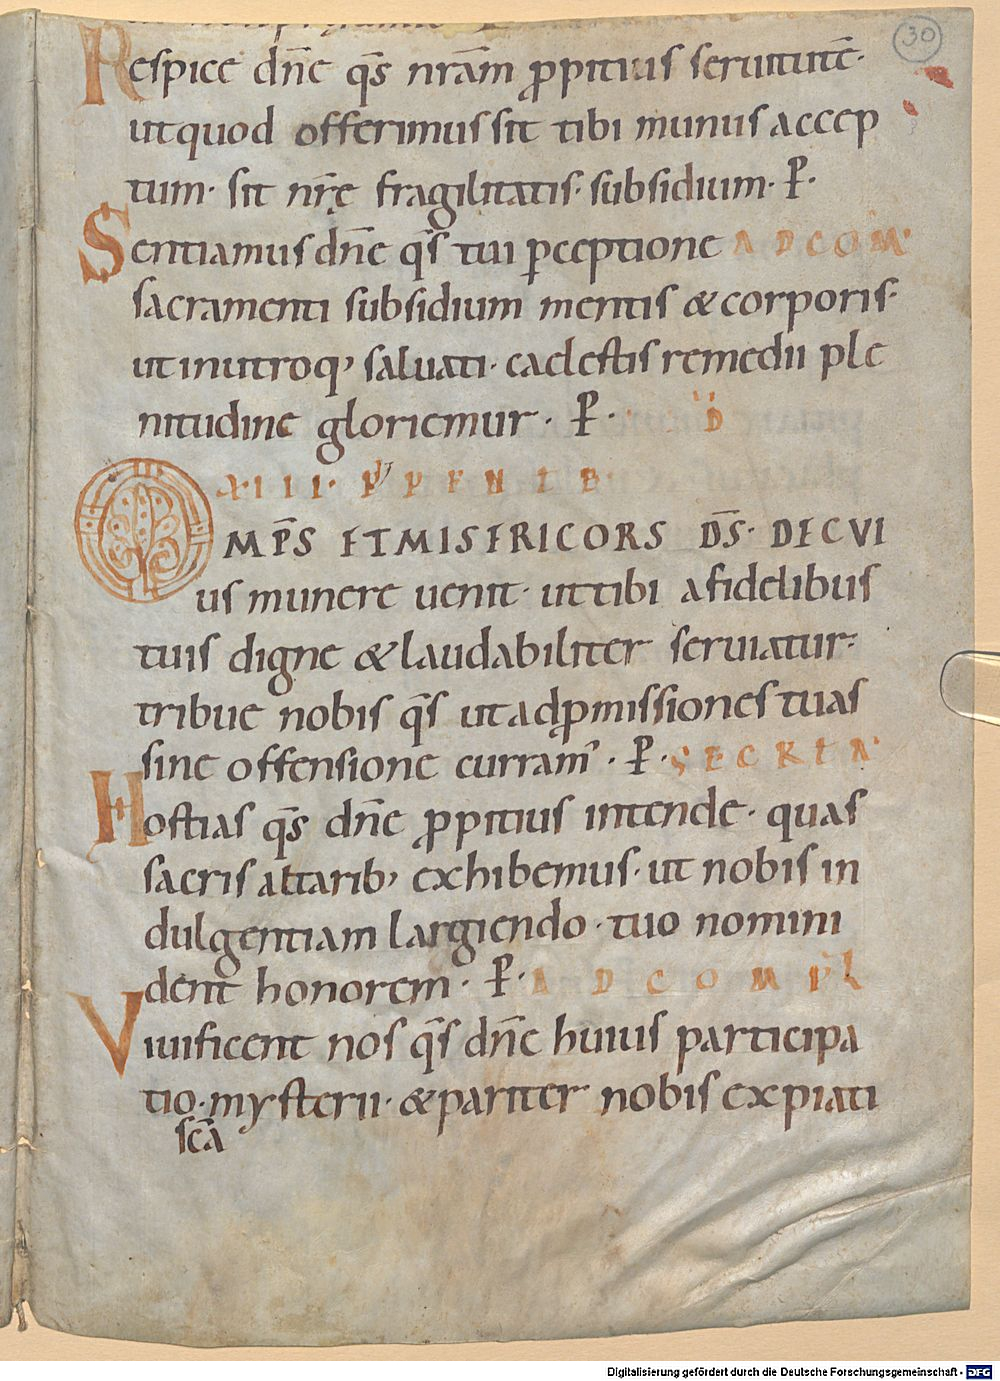 30
Respice dn̄e qs̄ nrām ꝓpitius seruitutē·
ut quod offerimus sit tibi munus accep
tum· sit nrę̄ fragilitatis· subsidium· P̄·
Sentiamus dn̄e qs̄ tui ꝑceptione AD COM̄·
sacramenti subsidium mentis & corporis·
ut in utroq; saluati· caelestis remedii ple
nitudine gloriemur· P̄·
XIII· P̄ PENTB·
OMP̄S ET MISERICORS DS̄· DE CVI
us munere uenit· ut tibi a fidelibus
tuis digne & laudabiliter seruiatur·
tribue nobis qs̄ ut ad ꝓmissiones tuas
sine offensione curram̄· P̄· SECRETA·
Hostias qs̄ dn̄e ꝓpitius intende· quas
sacris altarib; exhibemus· ut nobis in
dulgentiam largiendo· tuo nomini
dent honorem· P̄· AD COMPL̄
Viuificent nos qs̄ dn̄e huius participa
tio· mysterii· & pariter nobis expiati
scā
Digitalisierung gefördert durch die Deutsche Forschungsgemeinschaft - DFG